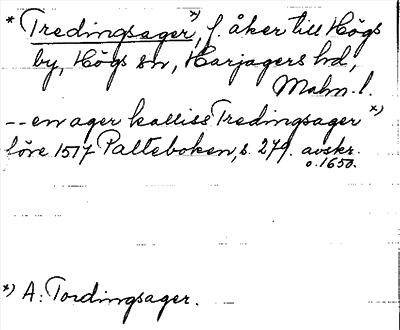 * Tredingsager *), f. åker till Högs
by, Högs sn, Harjagers hd,
Malm. l.
-- en ager kalliss Tredingsager *)
löre 1517 Palteboken, s. 279. avskr.
o. 1650.
*) A: Tordingsager.